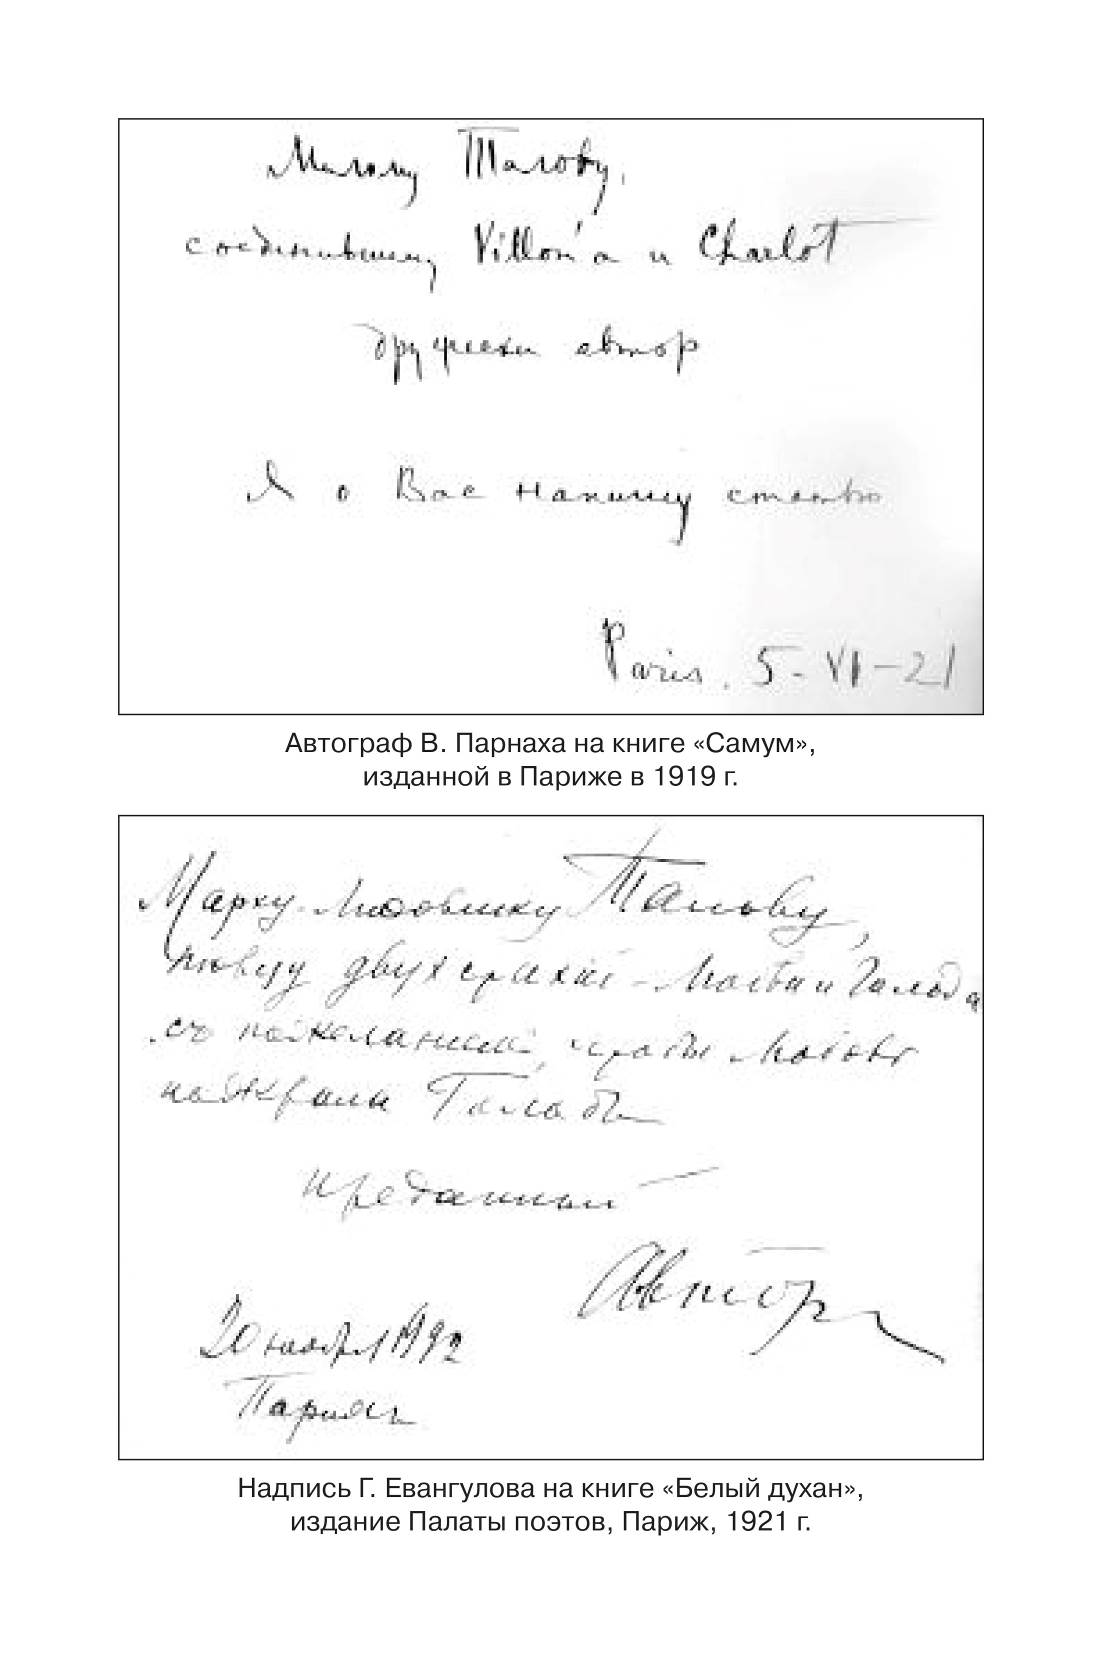 Милому Талову,
соединившему Villon'а и Charlot
дружески автор
Я о Вас напишу статью
Paris. 5-VI-21
Автограф В. Парнаха на книге «Самум»,
изданной в Париже в 1919 г.
Марку Людовику Талову,
певцу двух стихій – Любви и Голода
съ пожеланием, чтобы Любовь
пожрала Голодъ
преданный
Авторъ
20 ноября 1922
Парижъ
Надпись Г. Евангулова на книге «Белый духан»,
издание Палаты поэтов, Париж, 1921 г.